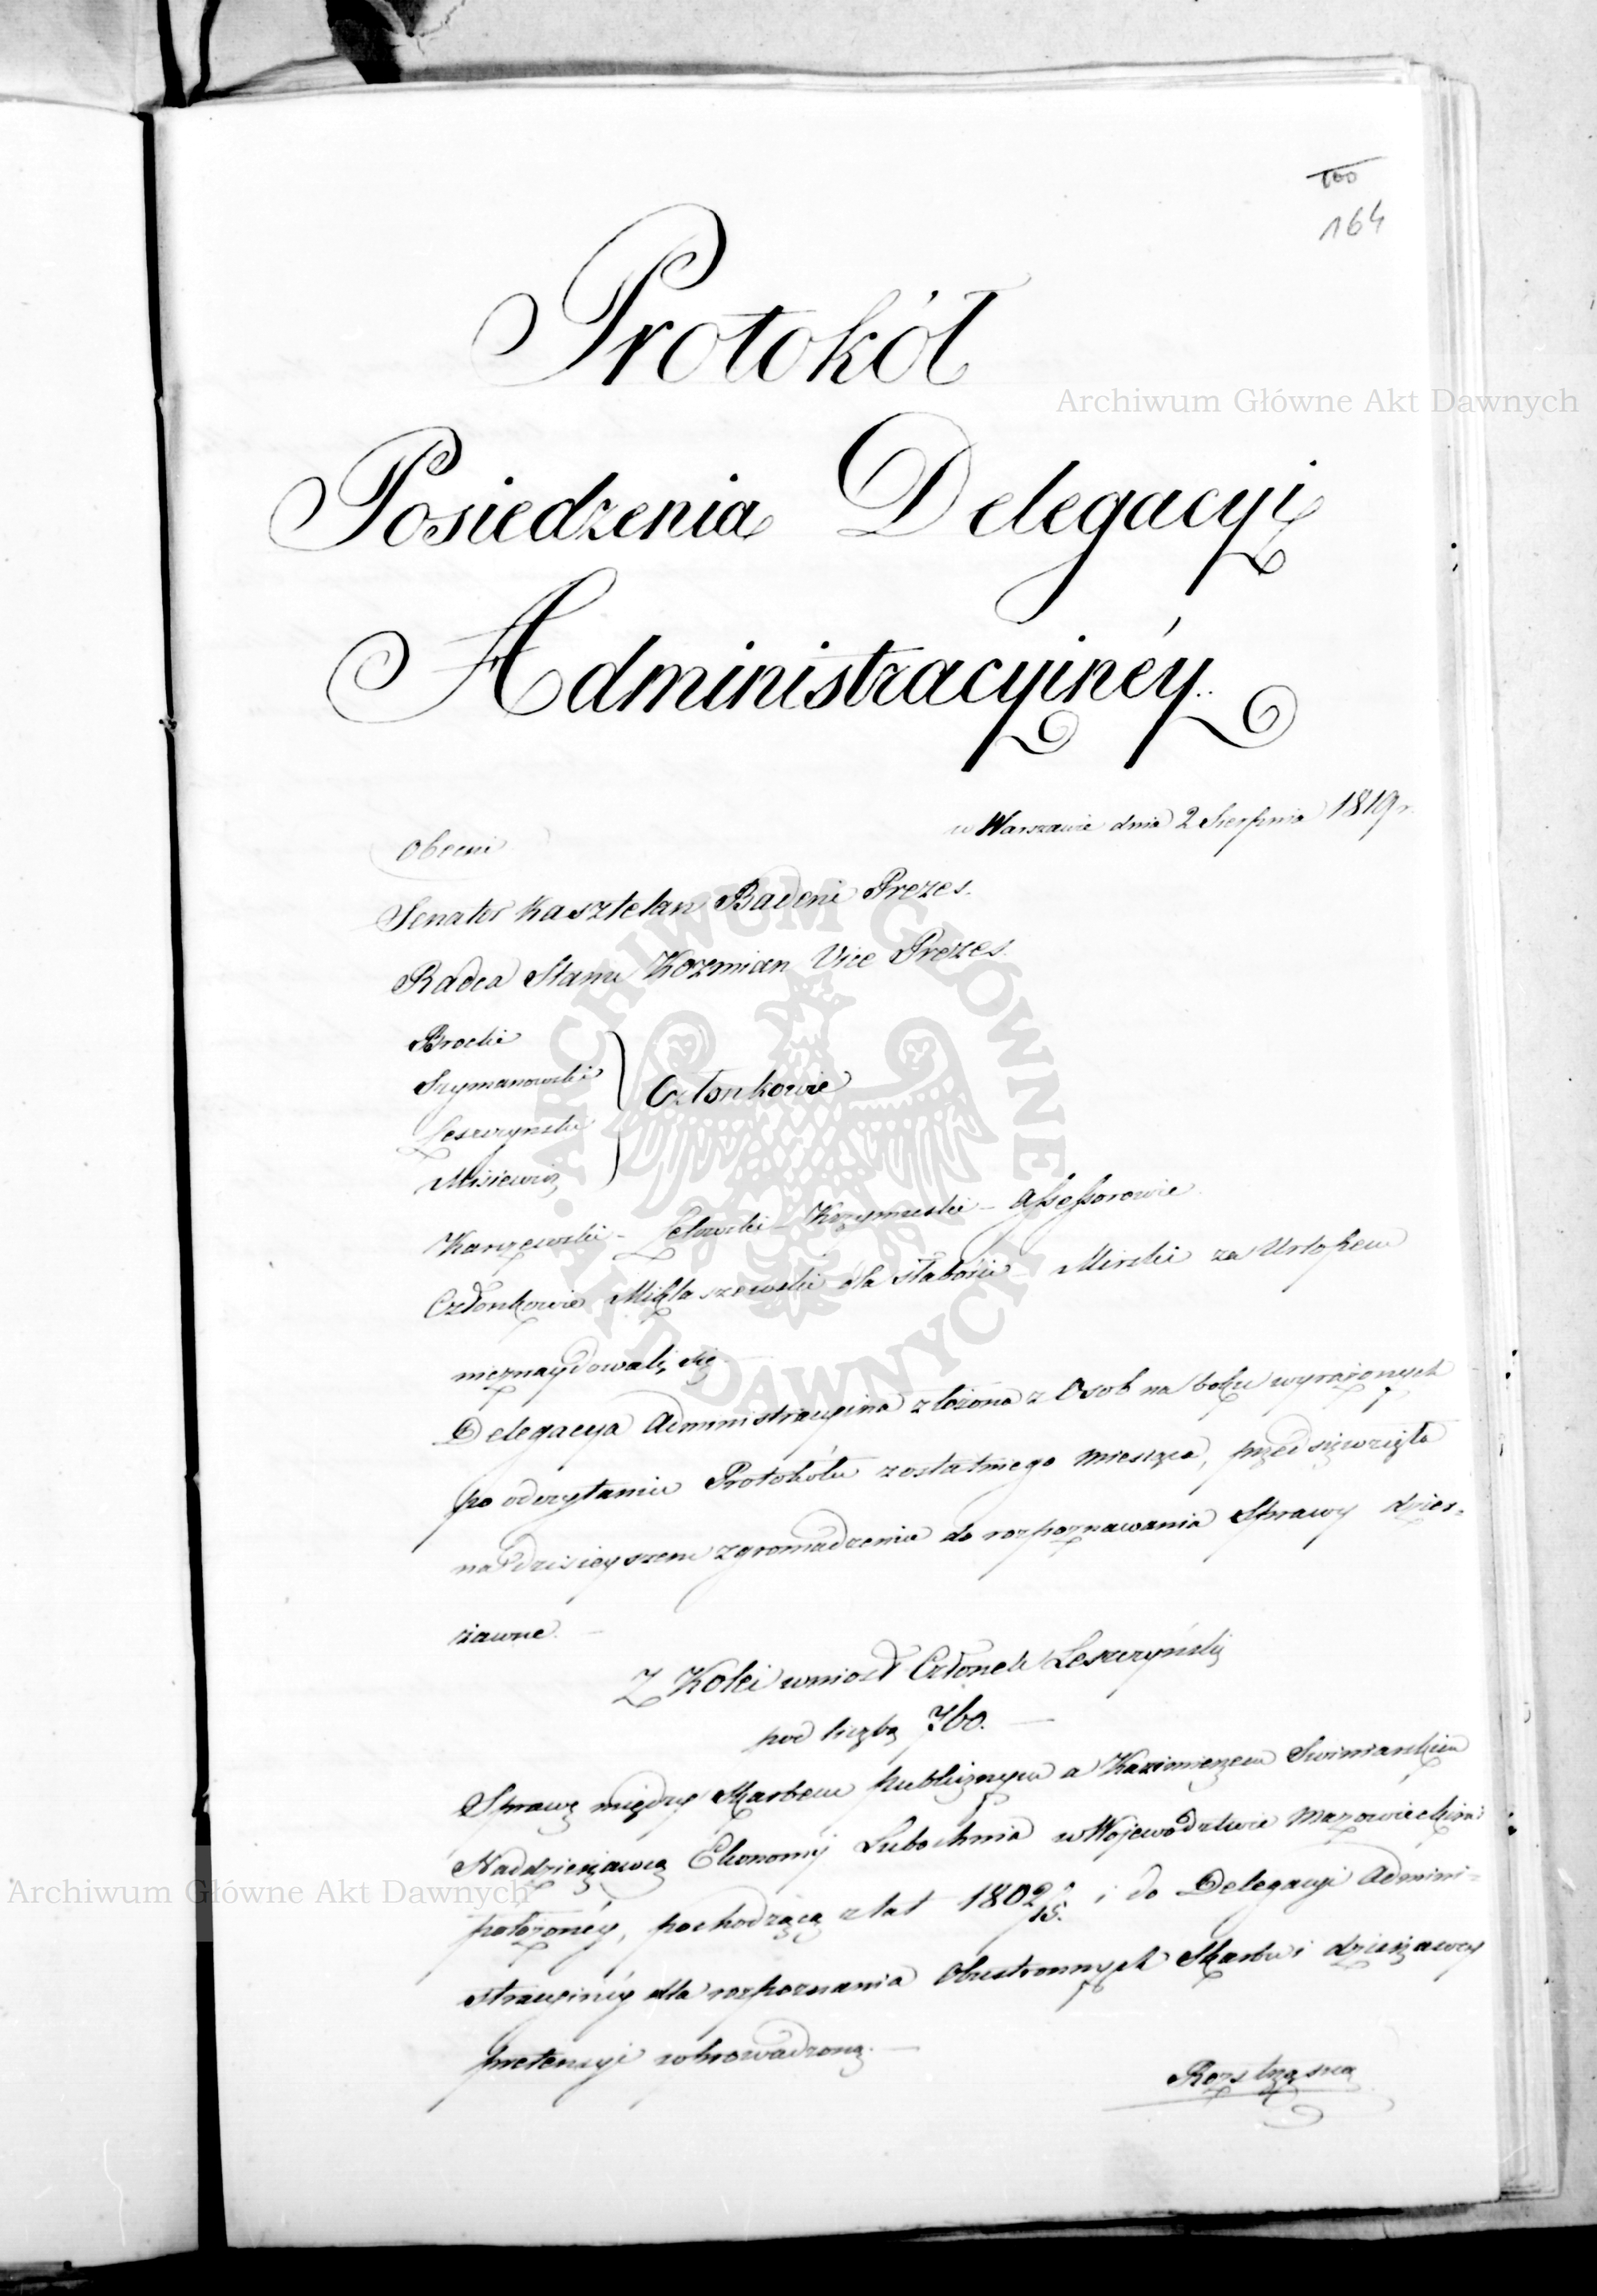 160
164
Protokół
Posiedzenia Delegacyi
Administracyinéy.
w Warszawie dnia 2 Sierpnia 1819 r.
Obecni
Senator Kasztelan Badeni Prezes.
Radca Stanu Kozmian Vice Prezes.
Brocki
Szymanowski
Leszczynski
Misiewicz
Członkowie
Karczewski - Lelowski - Kozymuski - Assessorowie
Członkowie Miklaszewski dla słabości - Mirski za Urlopem
nieznaydowali się
Delegacya Administracyina złożona z Osob na boku wyrażonych
po odczytaniu Protokółu zostatniego miesiąca, przedsięwzięła
na dzisieyszem zgromadzeniu do rozpoznawania Sprawy dzier-
żawne. -
Z Kolei wniosł Członek Leszczyński
pod liczbą 760. -
Sprawę między Skarbem publicznym a Kazimierzem Swiniarskim
Naddzierżawcą Ekonomij Lubochnia w Województwie Mazowieckim
położonéy, pochodzącą z lat 1802/15. i do Delegacyi Admini-
stracyinéy dla rozpoznania Obustronnych Skarbu i dzierżawcy
pretensyi wprowadzoną. -
Rozstrząsa
Archiwum Główne Akt Dawnych
Archiwum Główne Akt Dawnych
ARCHIWUM GŁÓWNE AKT DAWNYCH